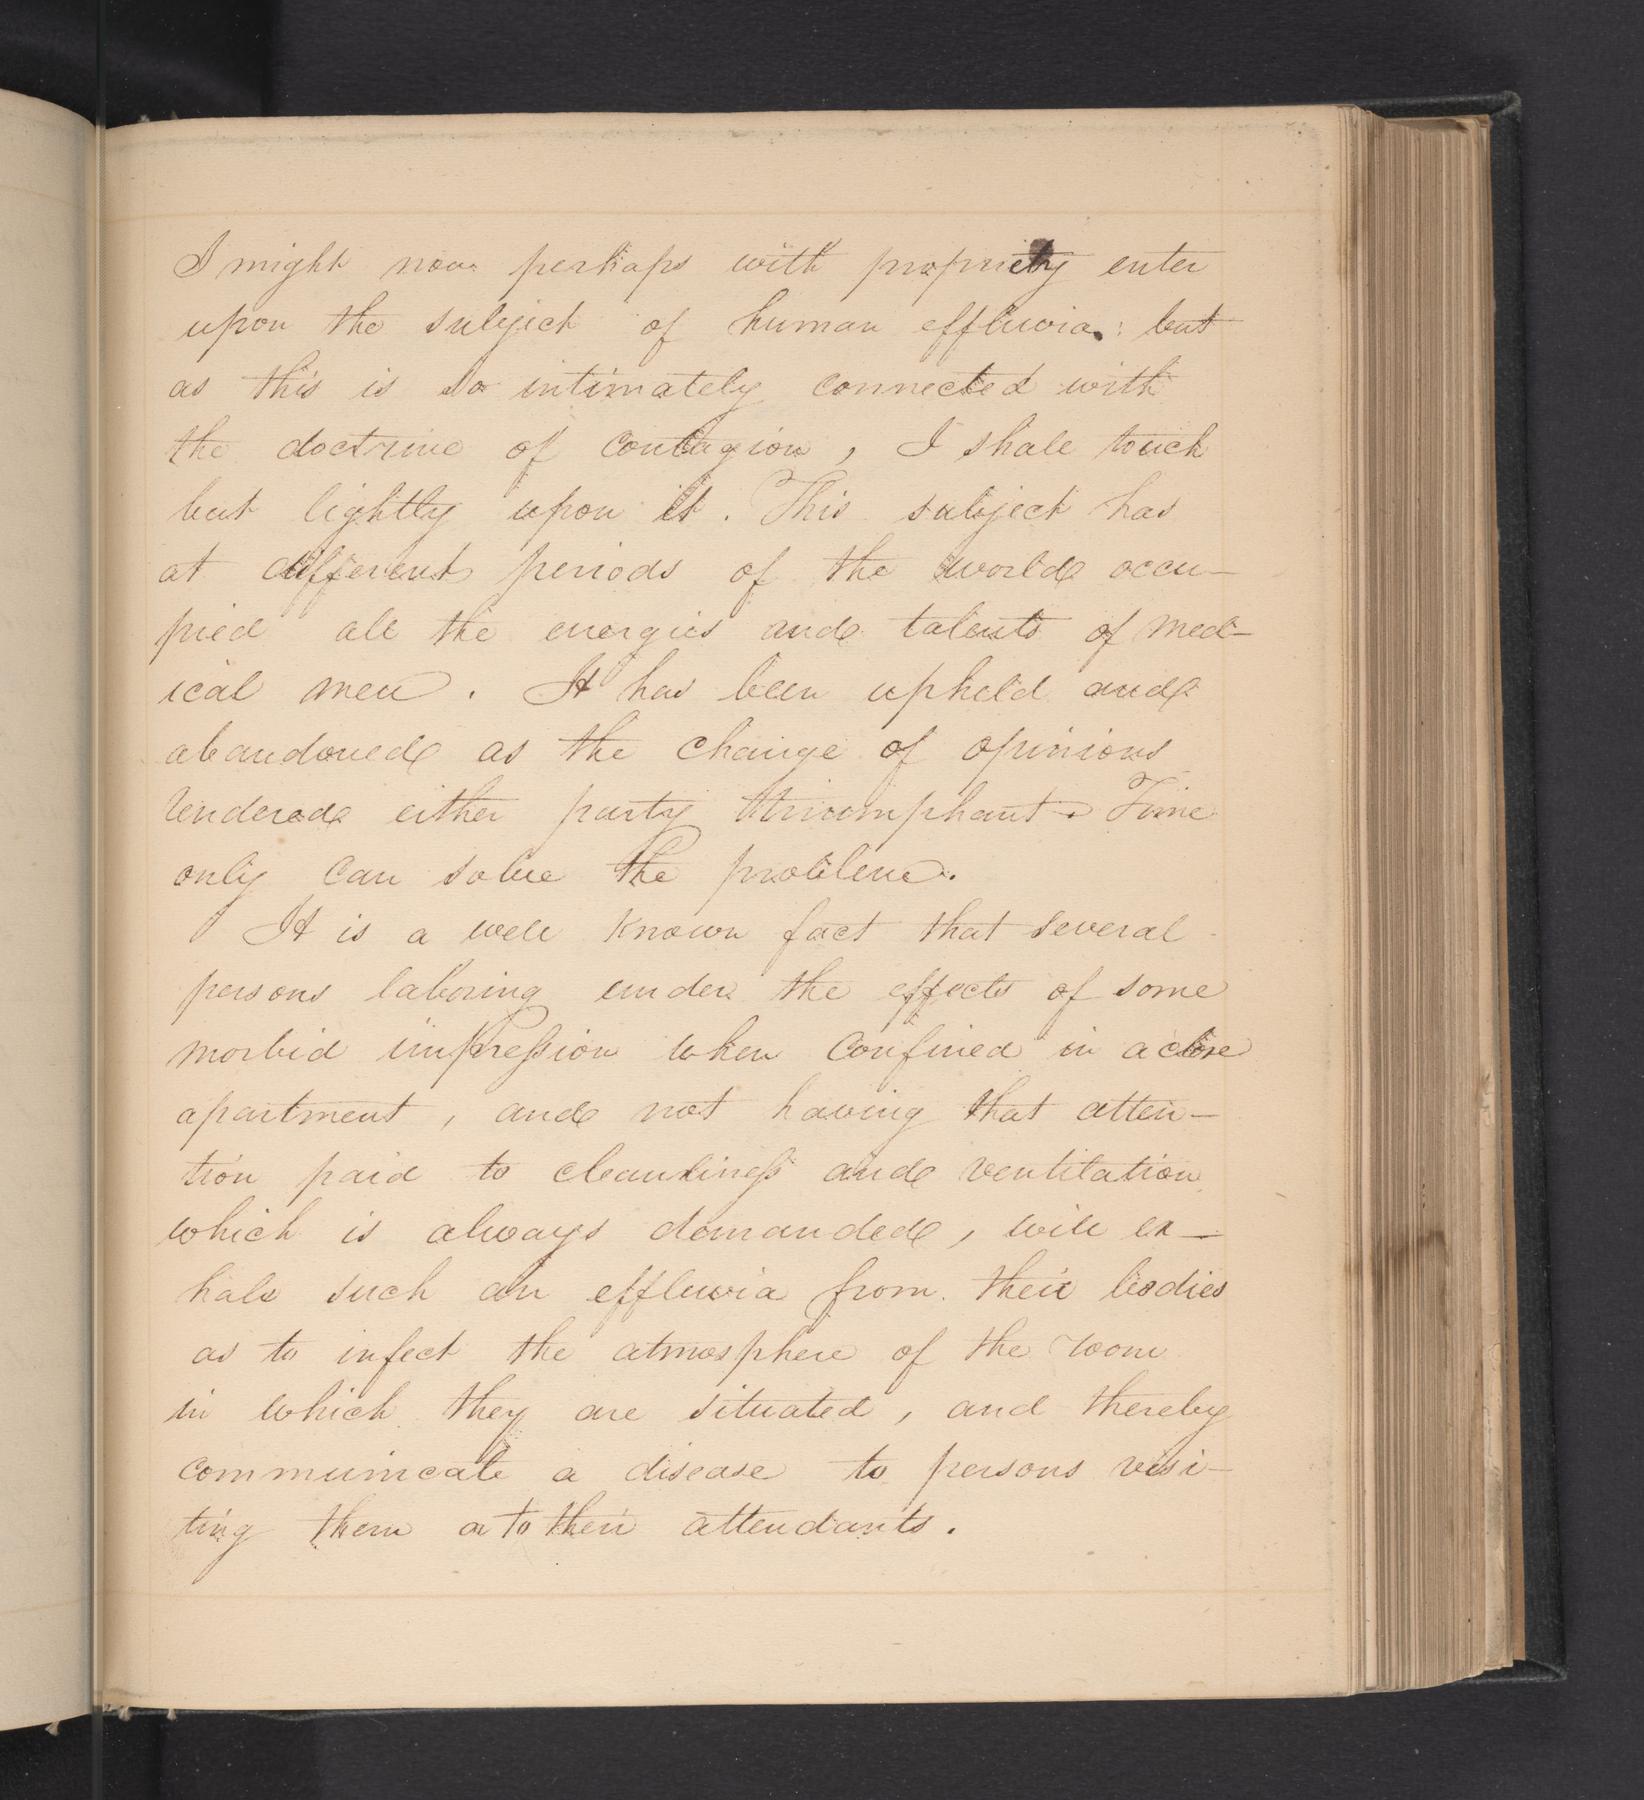 I might now perhaps with propriety enter
upon the subject of human effluvia : but
as this is so intimately connected with
the doctrine of contagion , I shall touch
but lightly upon it . This subject has
at different periods of the world occu-
pied all the energies and talents of med-
ical men . It has been upheld and
abandoned as the change of opinions
rendered either party triumphant . Time
only can solve the problem .
It is a well known fact that several
persons laboring under the effects of some
morbid impression when confined in a close
apartment , and not having that atten-
tion paid to cleanliness and ventilation
which is always demanded , will ex-
hale such an effluvia from their bodies
as to infect the atmosphere of the room
in which they are situated , and thereby
communicate a disease to persons visi-
ting them or to their attendants .